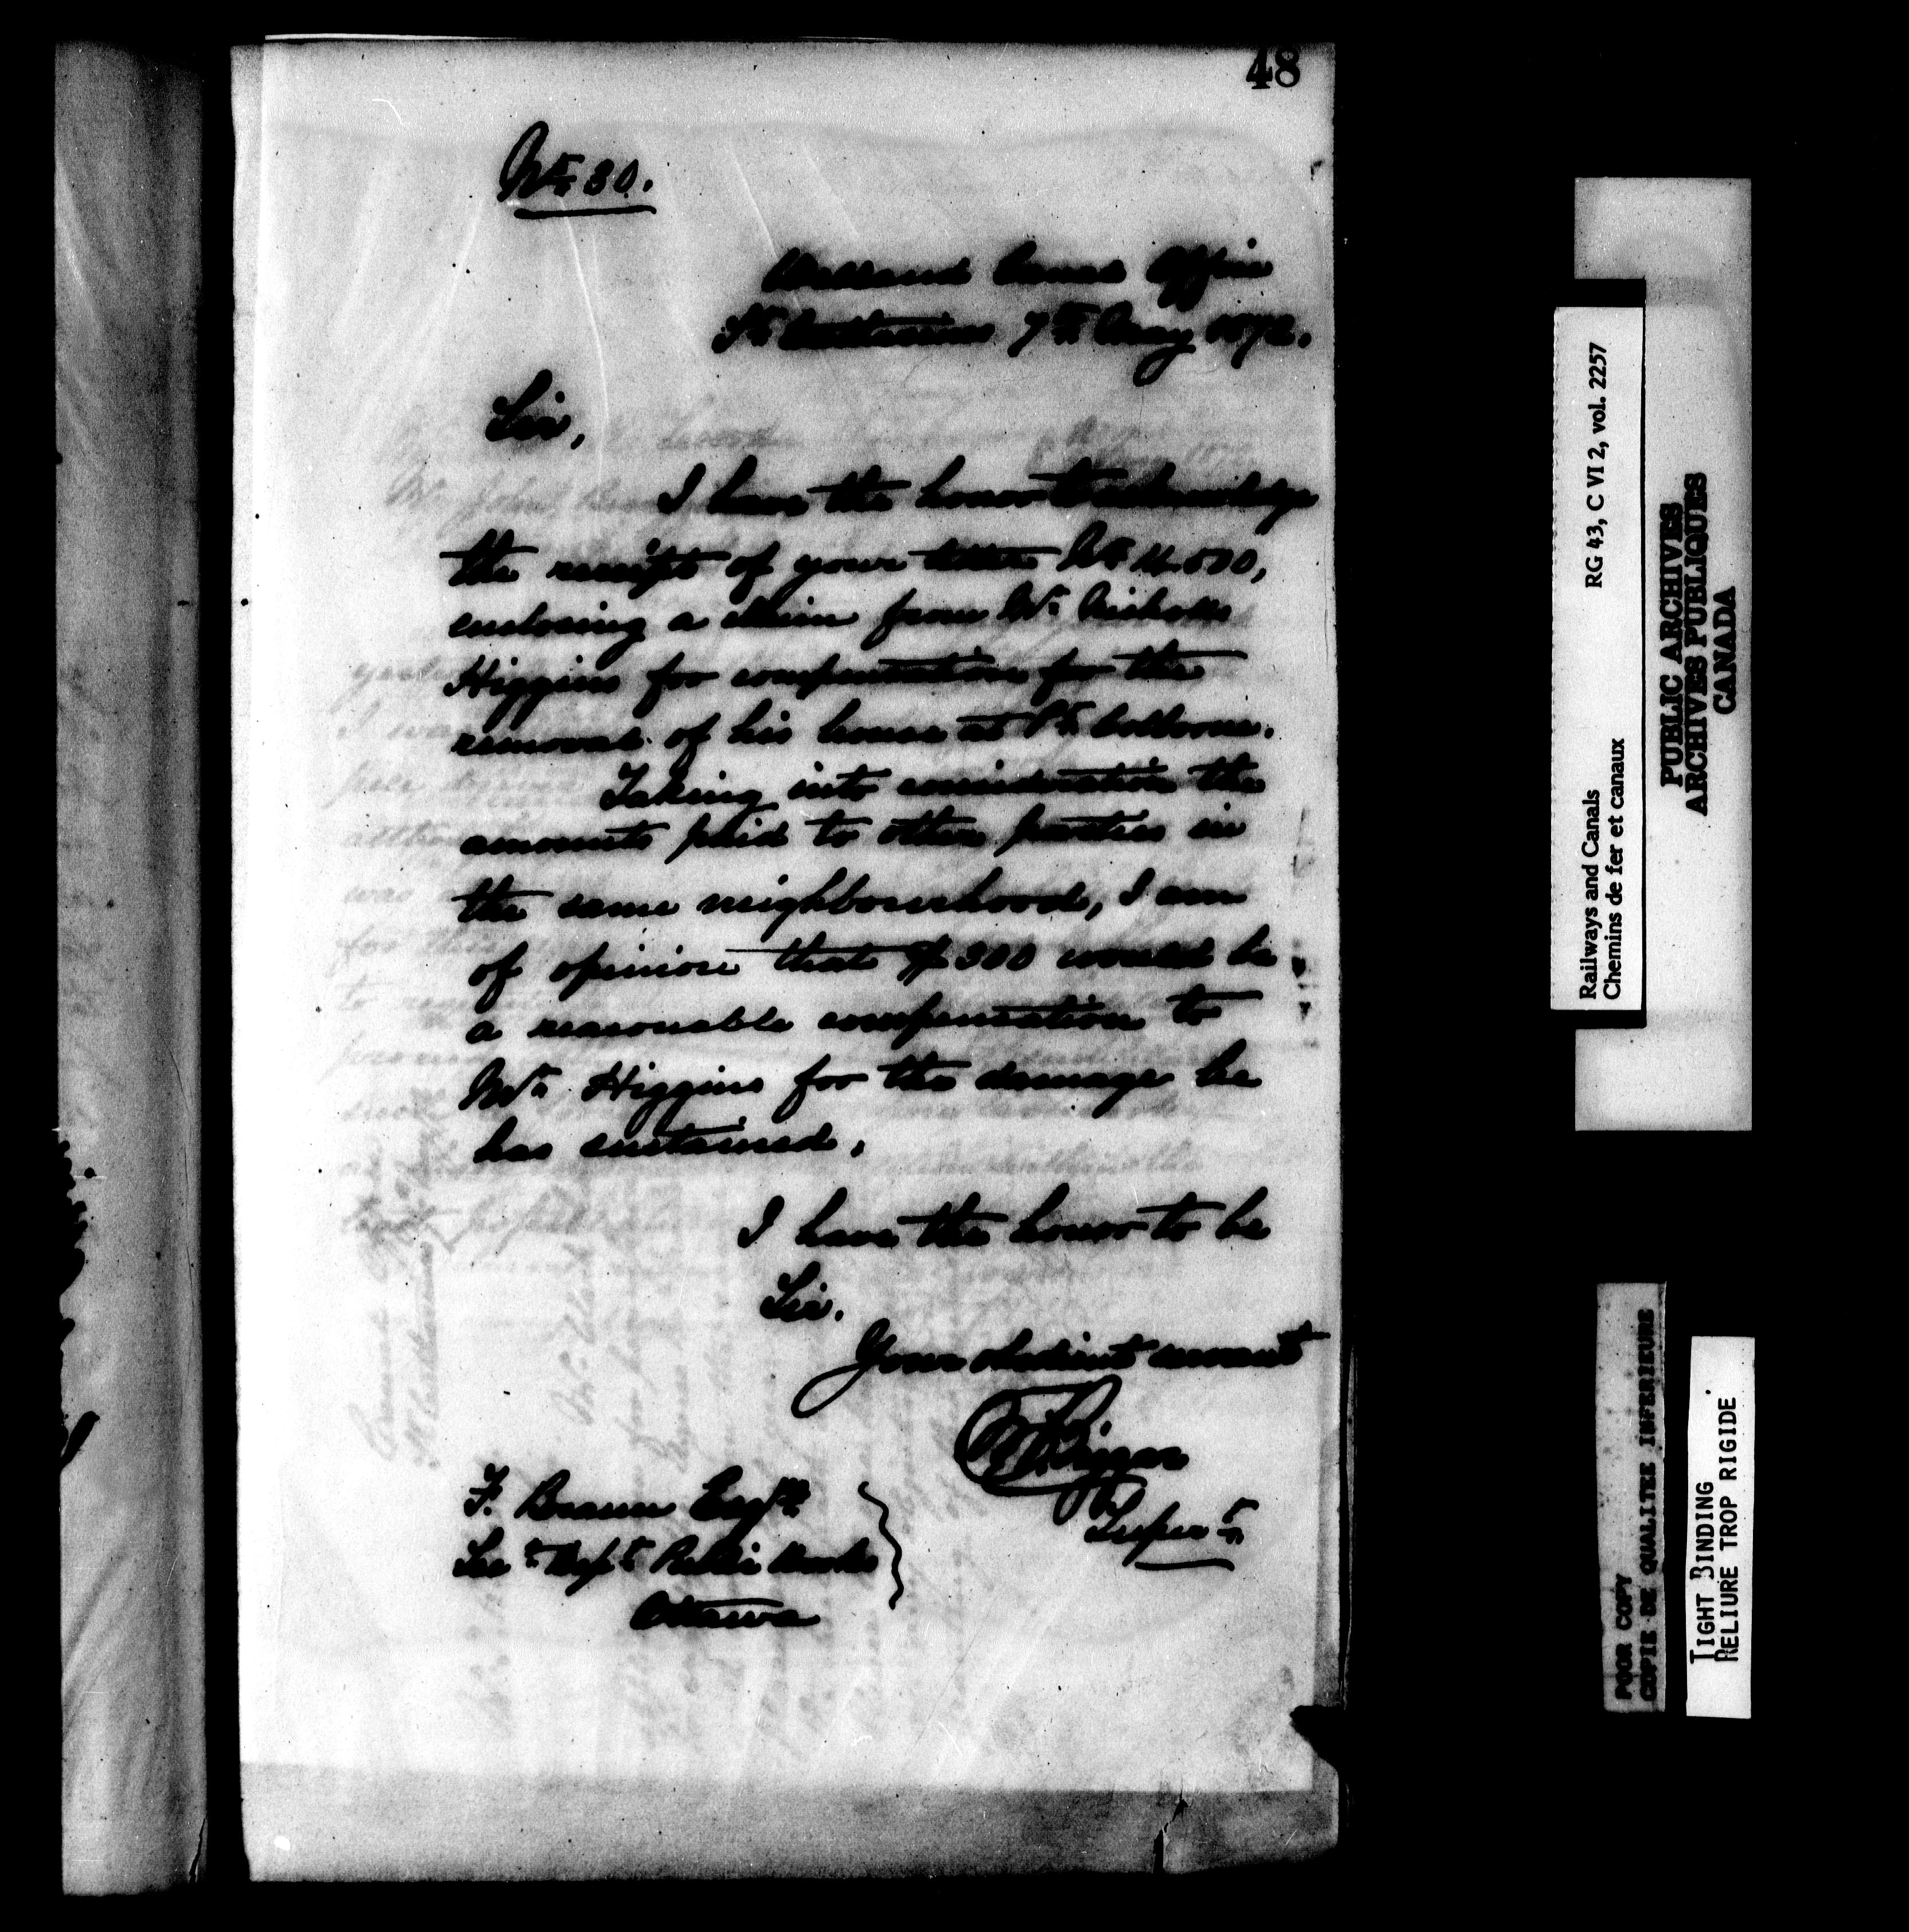 48
No. 30.
Welland Canal Office
St. Catharines 7th May 1872.
Sir,
I have the honor to acknowledge
the receipt of your letter No.
enclosing a claim from Mr. Nicholls
Higgins for compensation for the
removal of his house at Pt. Colborne.
Taking into consideration the
amounts paid to other parties in
the same neighbourhood, I am
of opinion that $300 would be
a reasonable compensation to
Mr. Higgins for the damage he
has sustained.
I have the honor to be
Sir.
Your obedient servant
Supert.
F. Braun Esqre
Secy. Dept. Public Works
Ottawa
Railways and Canals RG 43, C VI 2, vol. 2257
Chemins de fer et canaux
PUBLIC ARCHIVES
ARCHIVES PUBLIQUES
CANADA
POOR COPY
COPIE DE QUALITEE INFERIEURE
TIGHT BINDING
RELIURE TROP RIGIDE